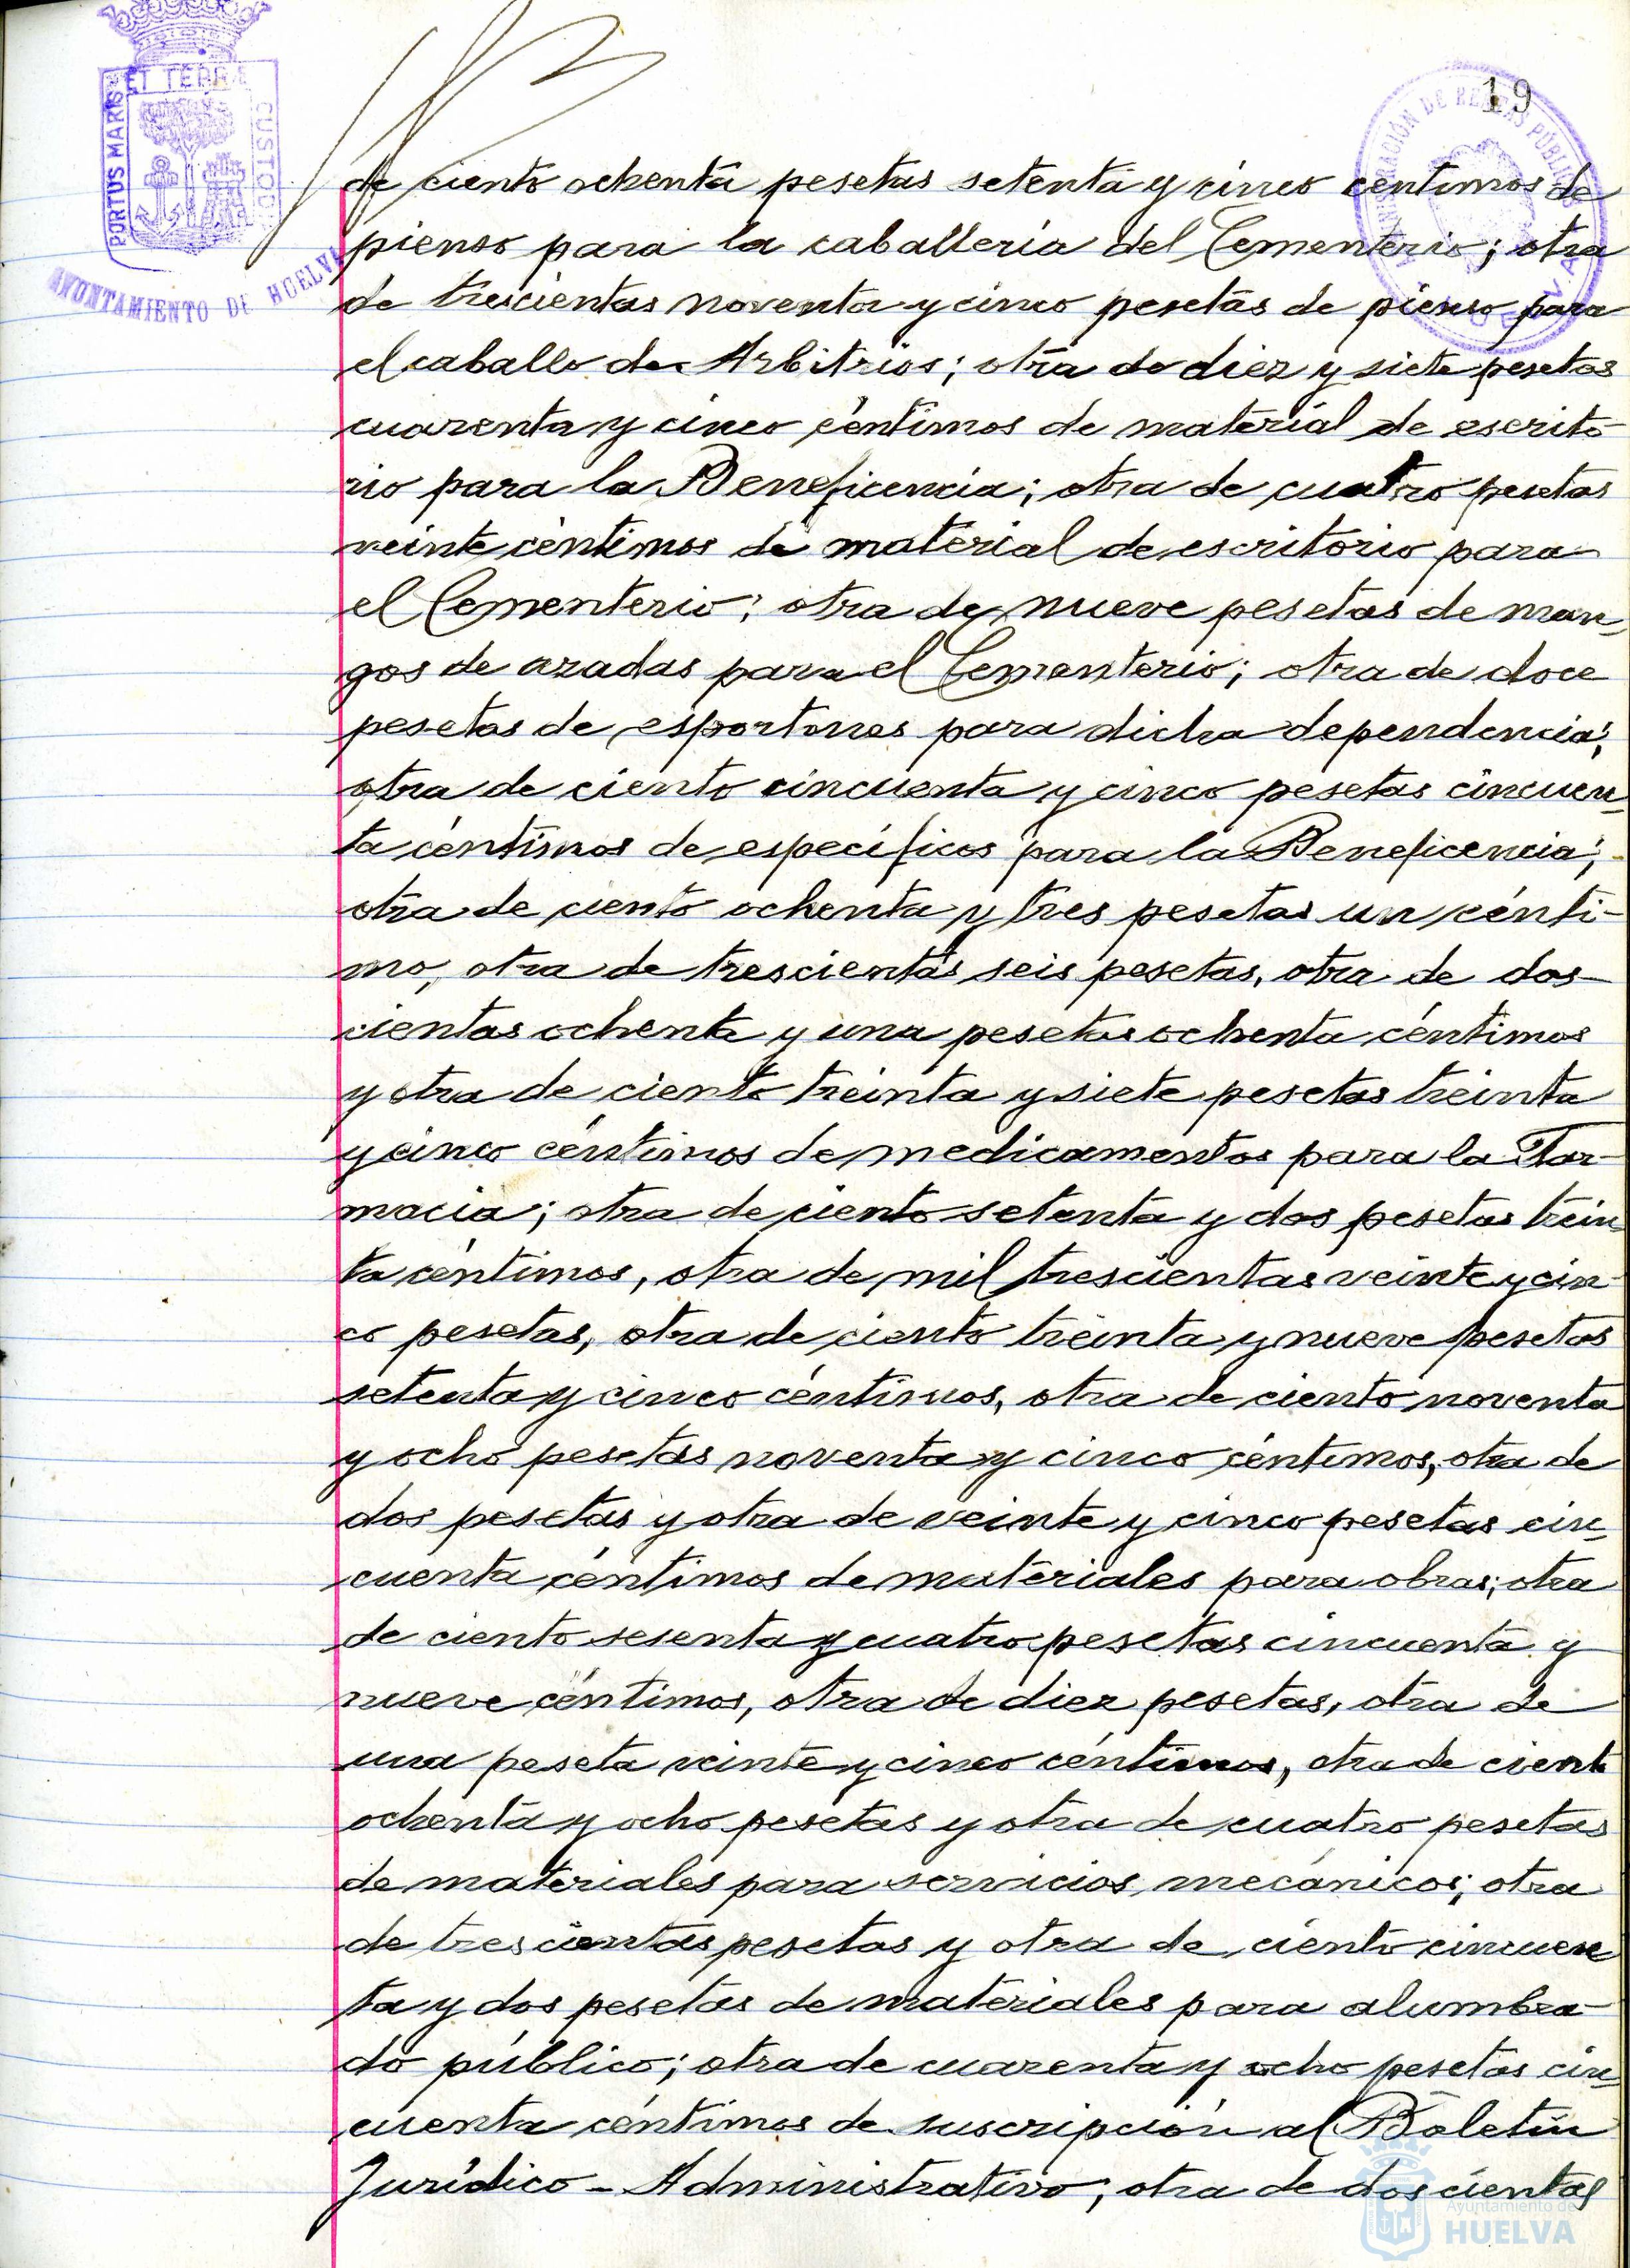 19
PORTUS MARIS ET TERRÆ CUSTODIA
AYUNTAMIENTO DE HUELVA
ADMINISTRACIÓN DE RENTAS PÚBLICAS
HUELVA
de ciento ochenta pesetas setenta y cinco centimos de
pienso para la caballeria del Cementerio; otra
de trescientas noventa y cinco pesetas de pienso para
el caballo de Arbitrios; otra de diez y siete pesetas
cuarenta y cinco céntimos de material de escrito-
rio para la Beneficencia; otra de cuatro pesetas
veinte céntimos de material de escritorio para
el Cementerio; otra de nueve pesetas de man-
gos de azadas para el Cementerio; otra de doce
pesetas de esportones para dicha dependencia;
otra de ciento cincuenta y cinco pesetas cincuen-
ta céntimos de específicos para la Beneficencia;
otra de ciento ochenta y tres pesetas un cénti-
mo, otra de trescientas seis pesetas, otra de dos-
cientas ochenta y una pesetas ochenta céntimos
y otra de ciento treinta y siete pesetas treinta
y cinco céntimos de medicamentos para la Far-
macia; otra de ciento setenta y dos pesetas trein-
ta céntimos, otra de mil trescientas veinte y cin-
co pesetas, otra de ciento treinta y nueve pesetas
setenta y cinco céntimos, otra de ciento noventa
y ocho pesetas noventa y cinco céntimos, otra de
dos pesetas y otra de veinte y cinco pesetas cin-
cuenta céntimos de materiales para obras; otra
de ciento sesenta y cuatro pesetas cincuenta y
nueve céntimos, otra de diez pesetas, otra de
una peseta veinte y cinco céntimos, otra de ciento
ochenta y ocho pesetas y otra de cuatro pesetas
de materiales para servicios mecánicos; otra
de trescientas pesetas y otra de ciento cincuen
ta y dos pesetas de materiales para alumbra-
do público; otra de cuarenta y ocho pesetas cin-
cuenta céntimos de suscripción al Boletín
Jurídico - Administrativo; otra de doscientas
Ayuntamiento de
HUELVA